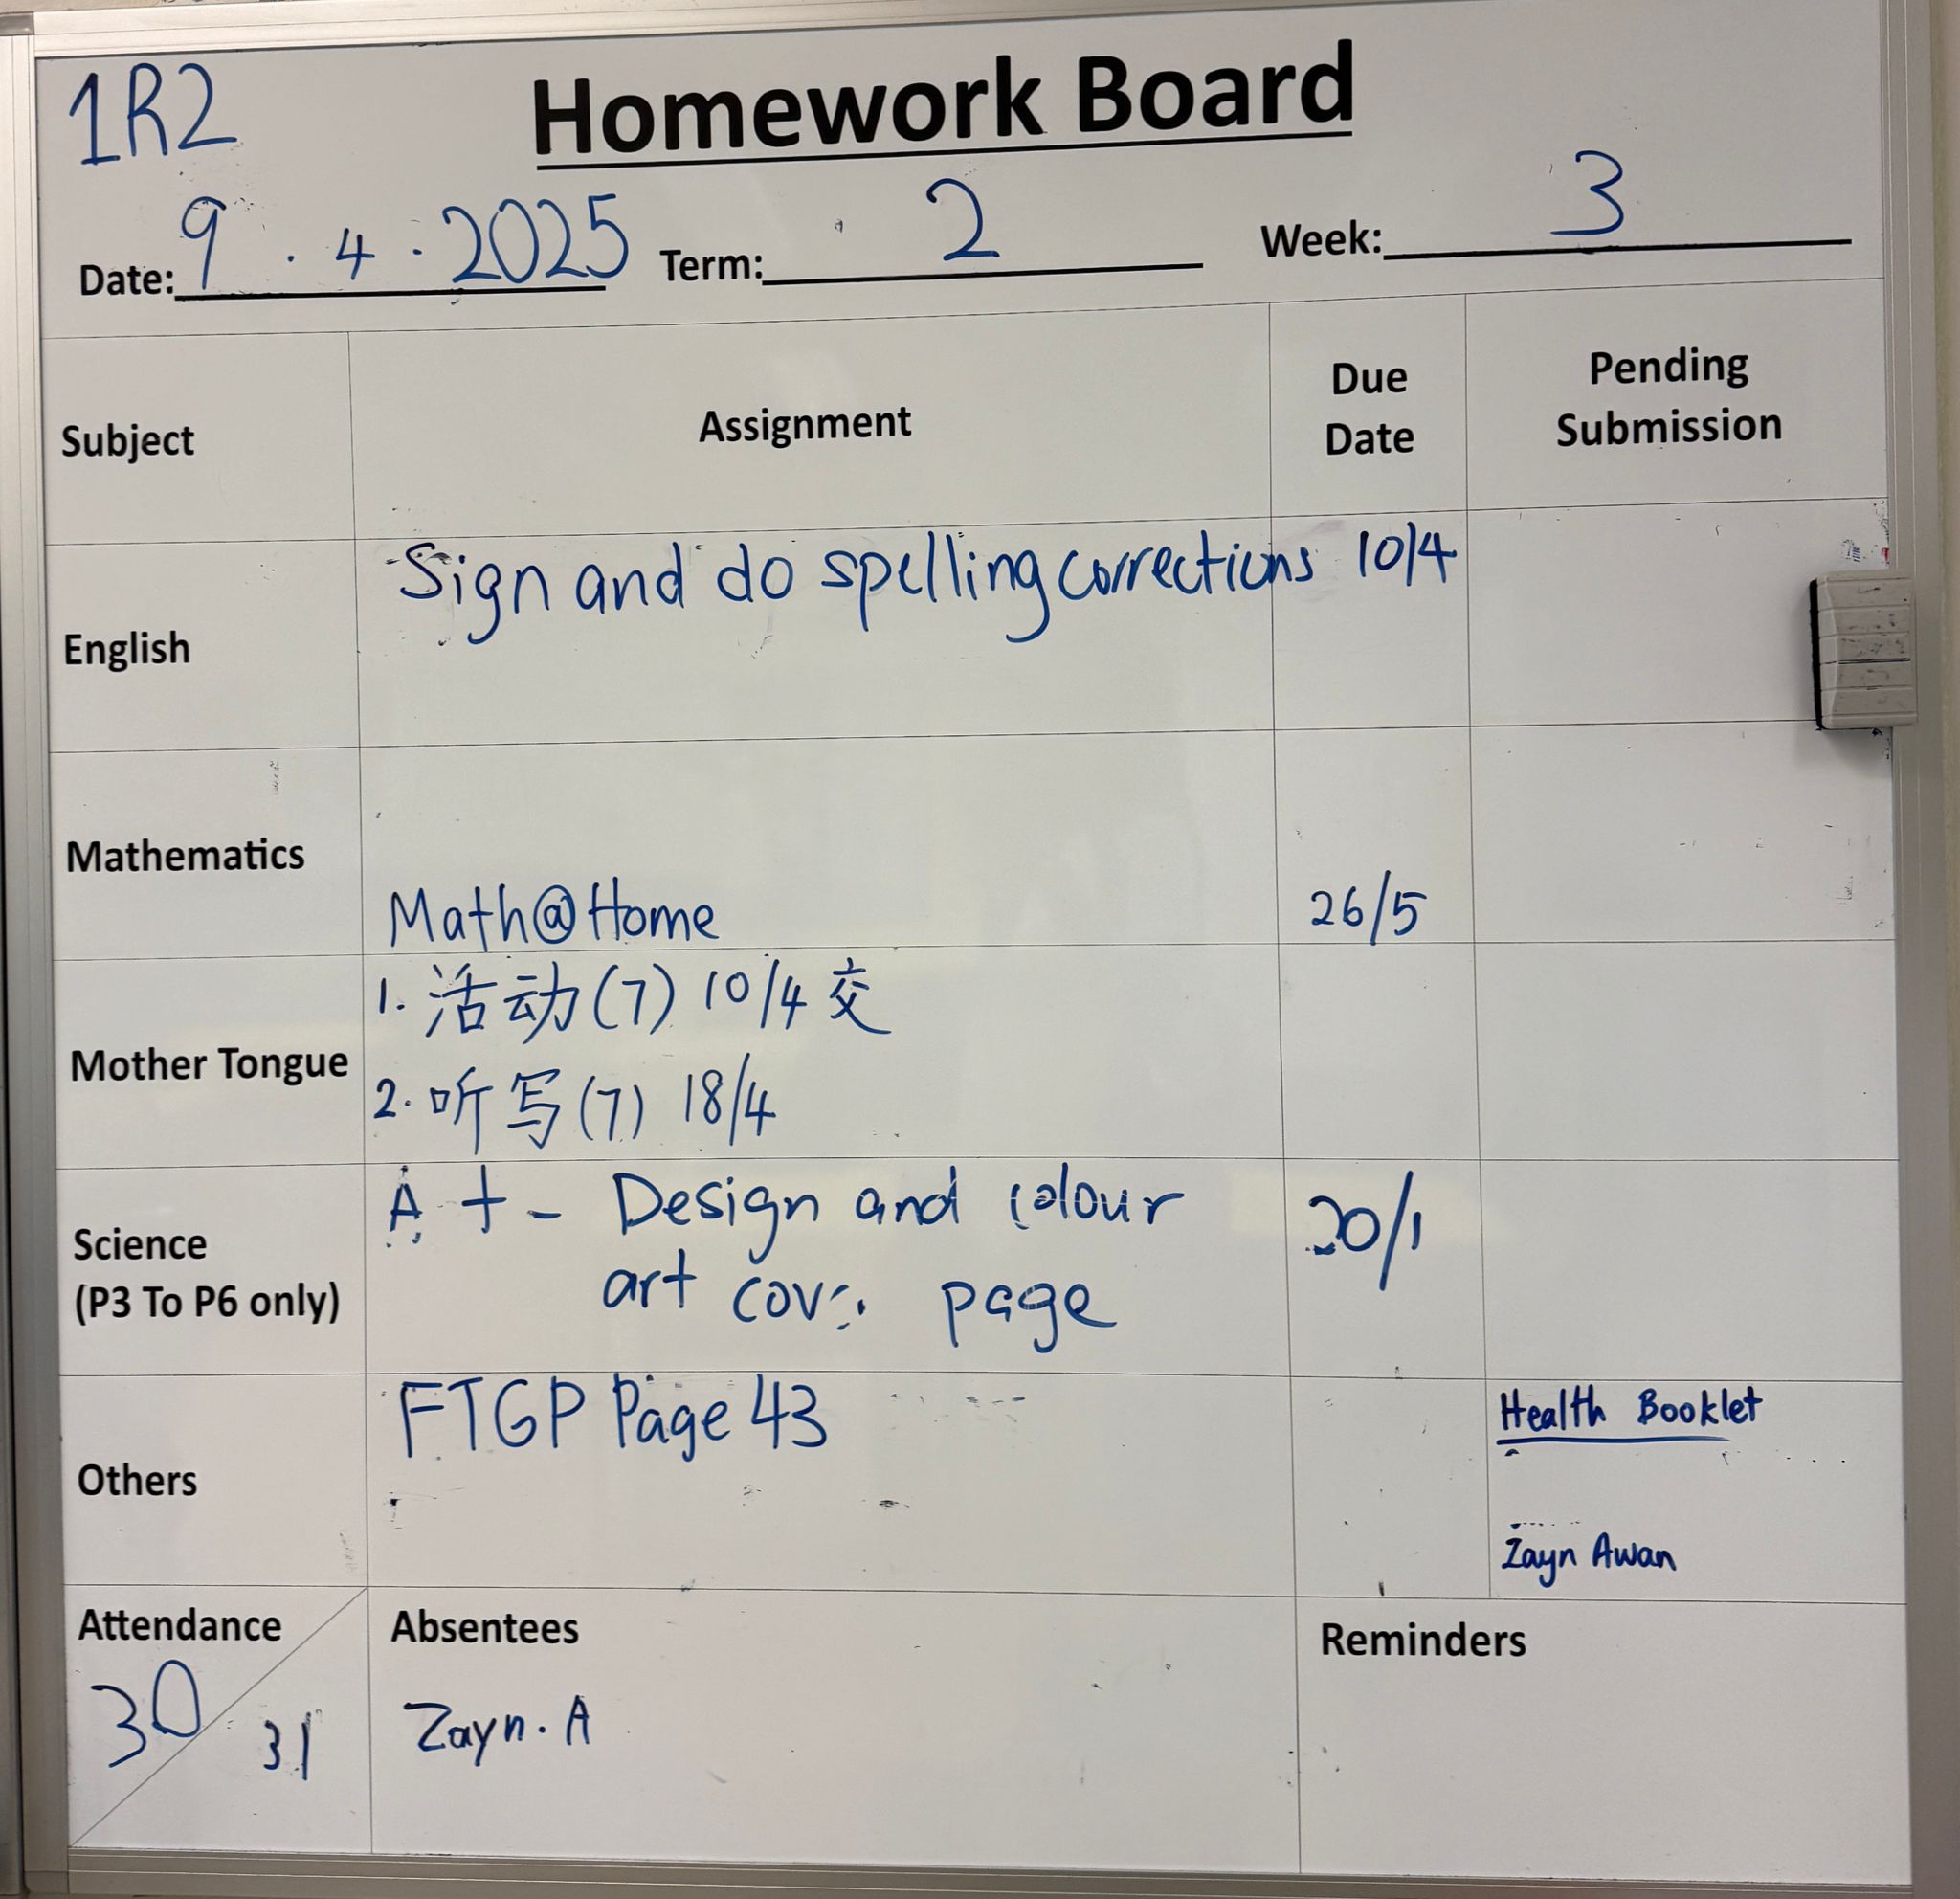 1R2
Homework Board
Date: 9.4.2025 Term: 2 Week: 3
Subject Assignment Due Date Pending Submission
English Sign and do spelling corrections 10/4
Mathematics Math@Home 26/5
Mother Tongue
1. 活动(7) 10/4 交
2. 听写(7) 18/4
Science (P3 To P6 only)
Design and colour
art page
Others FTGP Page 43
Health Booklet
Zayn Awan
Attendance Absentees Reminders
30 31 Zayn. A